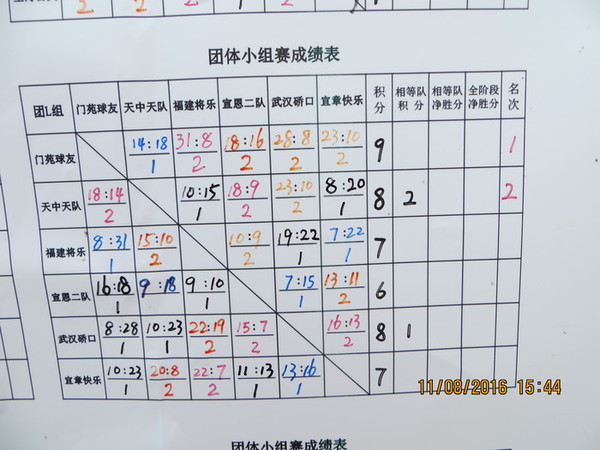 团体小组赛成绩表
团L组 门苑球友 天中天队 福建将乐 宣恩二队 武汉硚口 宜章快乐 积分 相等队积分 相等队净胜分 全阶段净胜分 名次
门苑球友 14:18 31:8 18:16 28:8 23:10 9 1
1 2 2 2 2
天中天队 18:14 10:15 18:9 23:10 8:20 8 2 2
2 1 2 2 1
福建将乐 8:31 15:10 10:9 19:22 7:22 7
1 2 2 1 1
宣恩二队 16:18 9:18 9:10 7:15 13:11 6
1 1 1 2
武汉硚口 8:28 10:23 22:19 15:7 16:13 8 1
1 1 2 2 2
宜章快乐 10:23 20:8 22:7 11:13 13:16 7
1 2 2 1 1
11/08/2016 15:44
团体小组赛成绩表